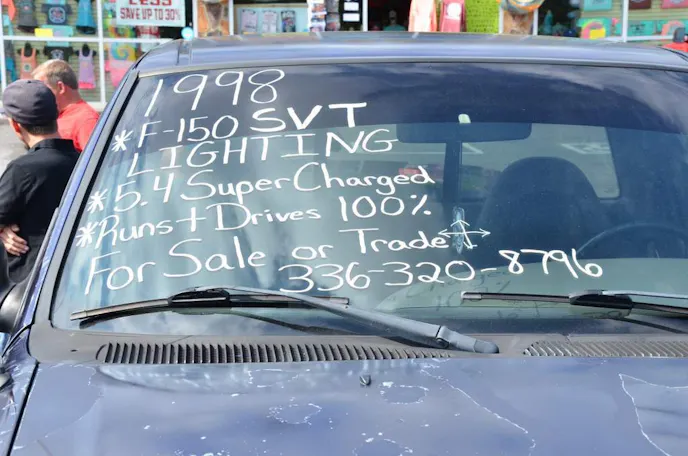 LESS
SAVE UP TO 30%
1998
*F-150 SVT
LIGHTING
*5.4 SuperCharged
*Runs + Drives 100%
For Sale or Trade
336-320-8796